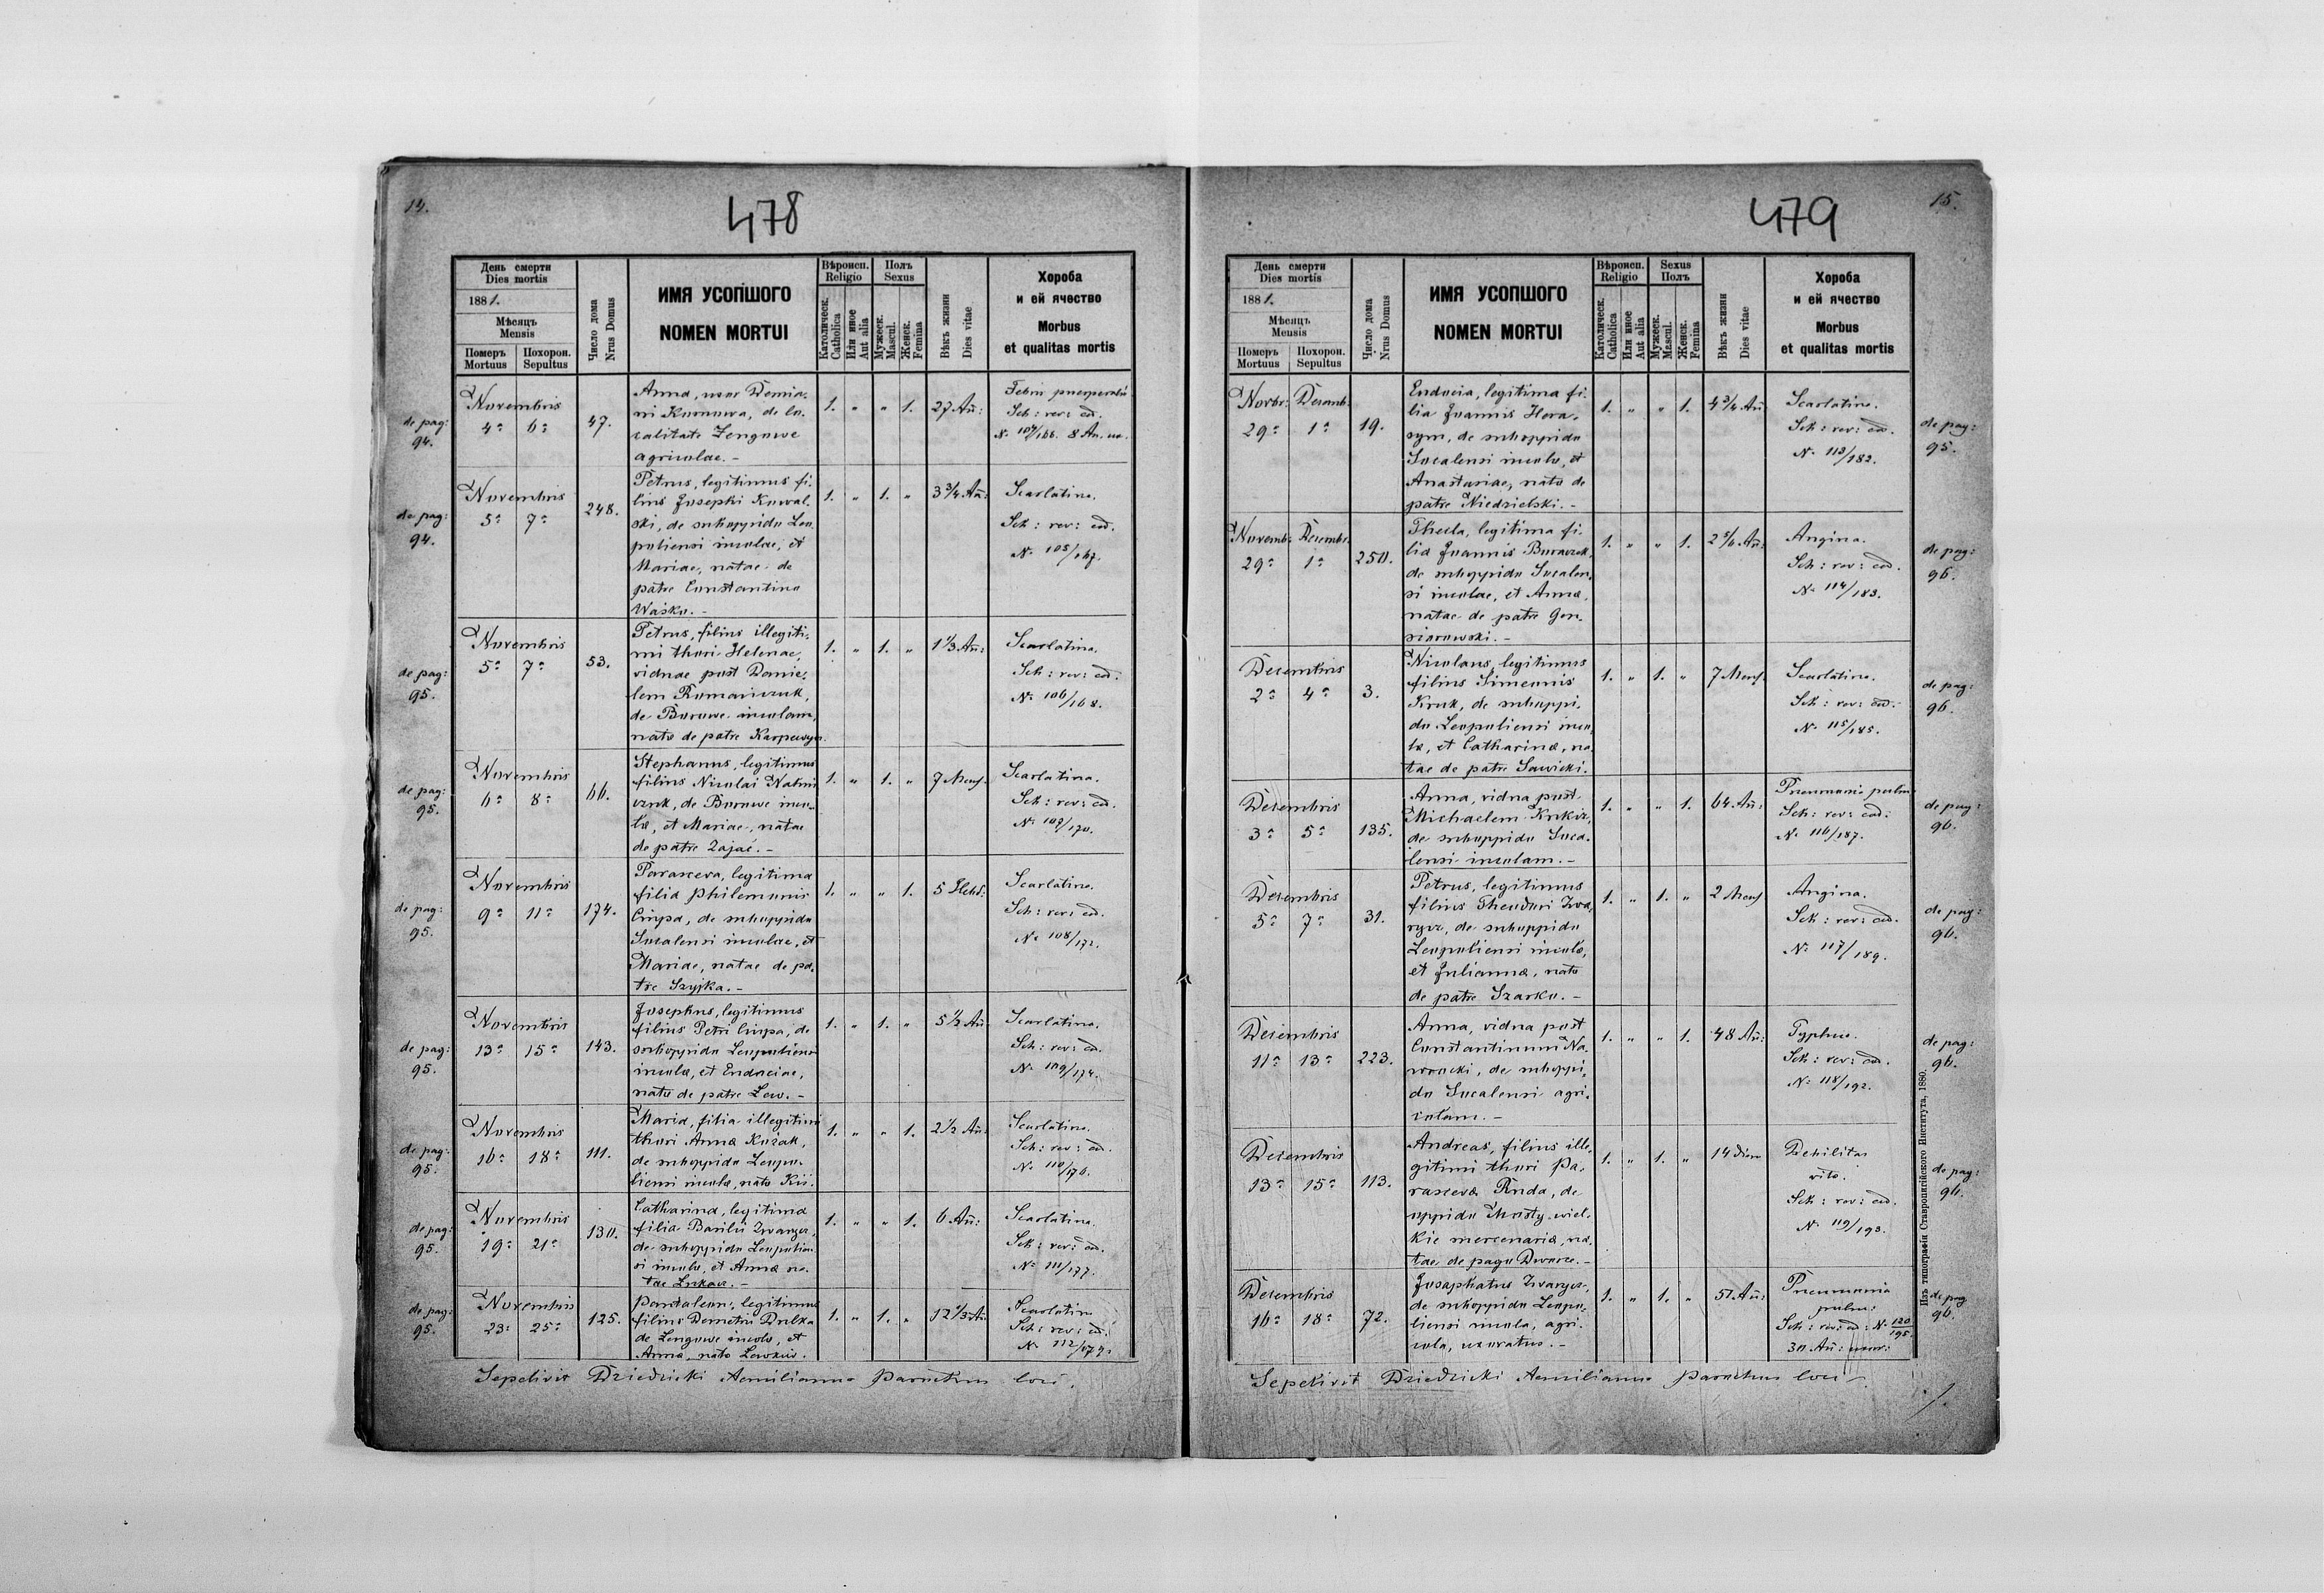 14.
478
День смерти
Dies mortis
1881.
Мѣсяцъ
Mensis
Померъ
Mortuus
Похорон.
Sepultus
Число дома
Nrus Domus
ИМЯ УСОПШОГО
NOMEN MORTUI
Вѣроисп.
Religio
Католическ.
Catholica
Или иное
Aut alia
Полъ
Sexus
Мужеск.
Mascul.
Женск.
Femina
Вѣкъ жизни
Dies vitae
Хороба
и ей ячество
Morbus
et qualitas mortis
de pag: 94.
Novembris
4ª 6ª
47.
Anna, uxor Demia-
ni Kononowa, de lo-
calitate Zengowe
agricolae. -
1. „ „ 1.
27 An:
Febris puerperalis
Sch: rev: ed.
Nº 104/166. 8 An. ux.
de pag: 94.
Novembris
5ª 7ª
248.
Petrus, legitimus fi-
lius Josephi Kowal-
ski, de suboppido Leo-
poliensi incolae, et
Mariae, natae de
patre Constantino
Waśko. -
1. „ 1. „
3 3/4 An:
Scarlatina.
Sch: rev: ed.
Nº 105/167.
de pag: 95.
Novembris
5ª 7ª
53.
Petrus, filius illegiti-
mi thori Helenae,
viduae post Danie-
lem Romańczuk,
de Borowe incolam,
nata de patre
1. „ 1. „
1 1/3 An:
Scarlatina.
Sch: rev: ed.
Nº 106/168.
de pag: 95.
Novembris
6ª 8ª
66.
Stephanus, legitimus
filius Nicolai
czuk, de Borowe inco-
lae, et Mariae, natae
de patre Zajać. -
1. „ 1. „
7 Mens.
Scarlatina.
Sch: rev: ed.
Nº 107/170.
de pag: 95.
Novembris
9ª 11ª
174.
Parasceva, legitima
filia Philemonis
Ciupa, de suboppido
Socalensi incolae, et
Mariae, natae de pa-
tre Szyjka. -
1. „ „ 1.
5 Hebd.
Scarlatina.
Sch: rev: ed.
Nº 108/172.
de pag: 95.
Novembris
13ª 15ª
143.
Josephus, legitimus
filius Petri Ciupa, de
suboppido Leopoliensi
incolae, et Eudociae,
nata de patre Lew. -
1. „ 1. „
5 1/2 An:
Scarlatina.
Sch: rev: ed.
Nº 109/174.
de pag: 95.
Novembris
16ª 18ª
111.
Maria, filia illegitimi
thori Annae Kozak,
de suboppido Leopo-
liensi incolae, nata Kij.
1. „ „ 1.
2 1/2 An:
Scarlatina.
Sch: rev: ed.
Nº 110/176.
de pag: 95.
Novembris
19ª 21ª
130.
Catharina, legitima
filia Basilii Zwarycz,
de suboppido Leopolien-
si incolae, et Annae na-
tae Lukacz. -
1. „ „ 1.
6 An:
Scarlatina.
Sch: rev: ed.
Nº 111/177.
de pag: 95.
Novembris
23ª 25ª
125.
Pantaleon, legitimus
filius Demetrii Dulka
de Lengowe incolae, et
Annae, nata Lewkiw.
1. „ 1. „
12 1/3 An:
Scarlatina
Sch: rev: ed.
Nº 112/179.
Sepelivit Dziedzicki Aemilianus Parochus loci.
479
15.
День смерти
Dies mortis
1881.
Мѣсяцъ
Mensis
Померъ
Mortuus
Похорон.
Sepultus
Число дома
Nrus Domus
ИМЯ УСОПШОГО
NOMEN MORTUI
Вѣроисп.
Religio
Католическ.
Catholica
Или иное
Aut alia
Sexus
Полъ
Мужеск.
Mascul.
Женск.
Femina
Вѣкъ жизни
Dies vitae
Хороба
и ей ячество
Morbus
et qualitas mortis
Novbr: Decemb.
29ª 1ª
19.
Eudocia, legitima fi-
lia Joannis Hera-
sym, de suboppido
Socalensi incolae, et
Anastasiae, nata de
patre Niedzielski. -
1. „ „ 1.
4 3/4 An
Scarlatina.
Sch: rev: ed.
Nº 113/182.
de pag: 95.
Novemb: Decembr.
29ª 1ª
250.
Thecla, legitima fi-
lia Joannis Buraczok,
de suboppido Socalen-
si incolae, et Annae,
natae de patre Gon-
siorowski. -
1. „ „ 1.
2 5/6 An:
Angina.
Sch: rev: ed.
Nº 114/183.
de pag: 96.
Decembris
2ª 4ª
3.
Nicolaus, legitimus
filius Simeonis
Kruk, de suboppi-
do Leopoliensi inco-
lae, et Catharinae, na-
tae de patre Sawicki.
1. „ 1. „
7 Mens.
Scarlatina.
Sch: rev: ed.
Nº 115/185.
de pag: 96.
Decembris
3ª 5ª
135.
Anna, vidua post
Michaelem Kukiz,
de suboppido Soca-
lensi incolam. -
1. „ „ 1.
64 An:
Pneumonia pulm.
Sch: rev: ed:
Nº 116/187.
de pag: 96.
Decembris
5ª 7ª
31.
Petrus, legitimus
filius Theodori Zwa-
rycz, de suboppido
Leopoliensi incolae,
et Juliannae, nata
de patre Szarko. -
1. „ 1. „
2 Mens
Angina.
Sch: rev: ed.
Nº 117/189.
de pag: 96.
Decembris
11ª 13ª
223.
Anna, vidua post
Constantinum Na-
wrocki, de suboppi-
do Socalensi agri-
colam. -
1. „ „ 1.
48 An:
Typhus.
Sch: rev: ed.
Nº 118/192.
de pag: 96.
Decembris
13ª 15ª
113.
Andreas, filius ille-
gitimi thori Pa-
rascevae Ruda, de
oppido Mosty-wiel-
kie mercenaria, na-
tae de pago Dworce. -
1. „ 1. „
14 Dier
Debilitas
vitae.
Sch: rev: ed.
Nº 119/193.
de pag: 96.
Decembris
16ª 18ª
72.
Josaphatus Zwarycz,
de suboppido Leopo-
liensi incola, agri-
cola, uxoratus. -
1. „ 1. „
51 An:
Pneumonia
pulm:
Sch: rev: ed: Nº 120/195.
30 An: uxor:
de pag 96.
Sepelivit Dziedzicki Aemilianus Parochus loci
Изъ типографіи Ставропигійского Института, 1880.